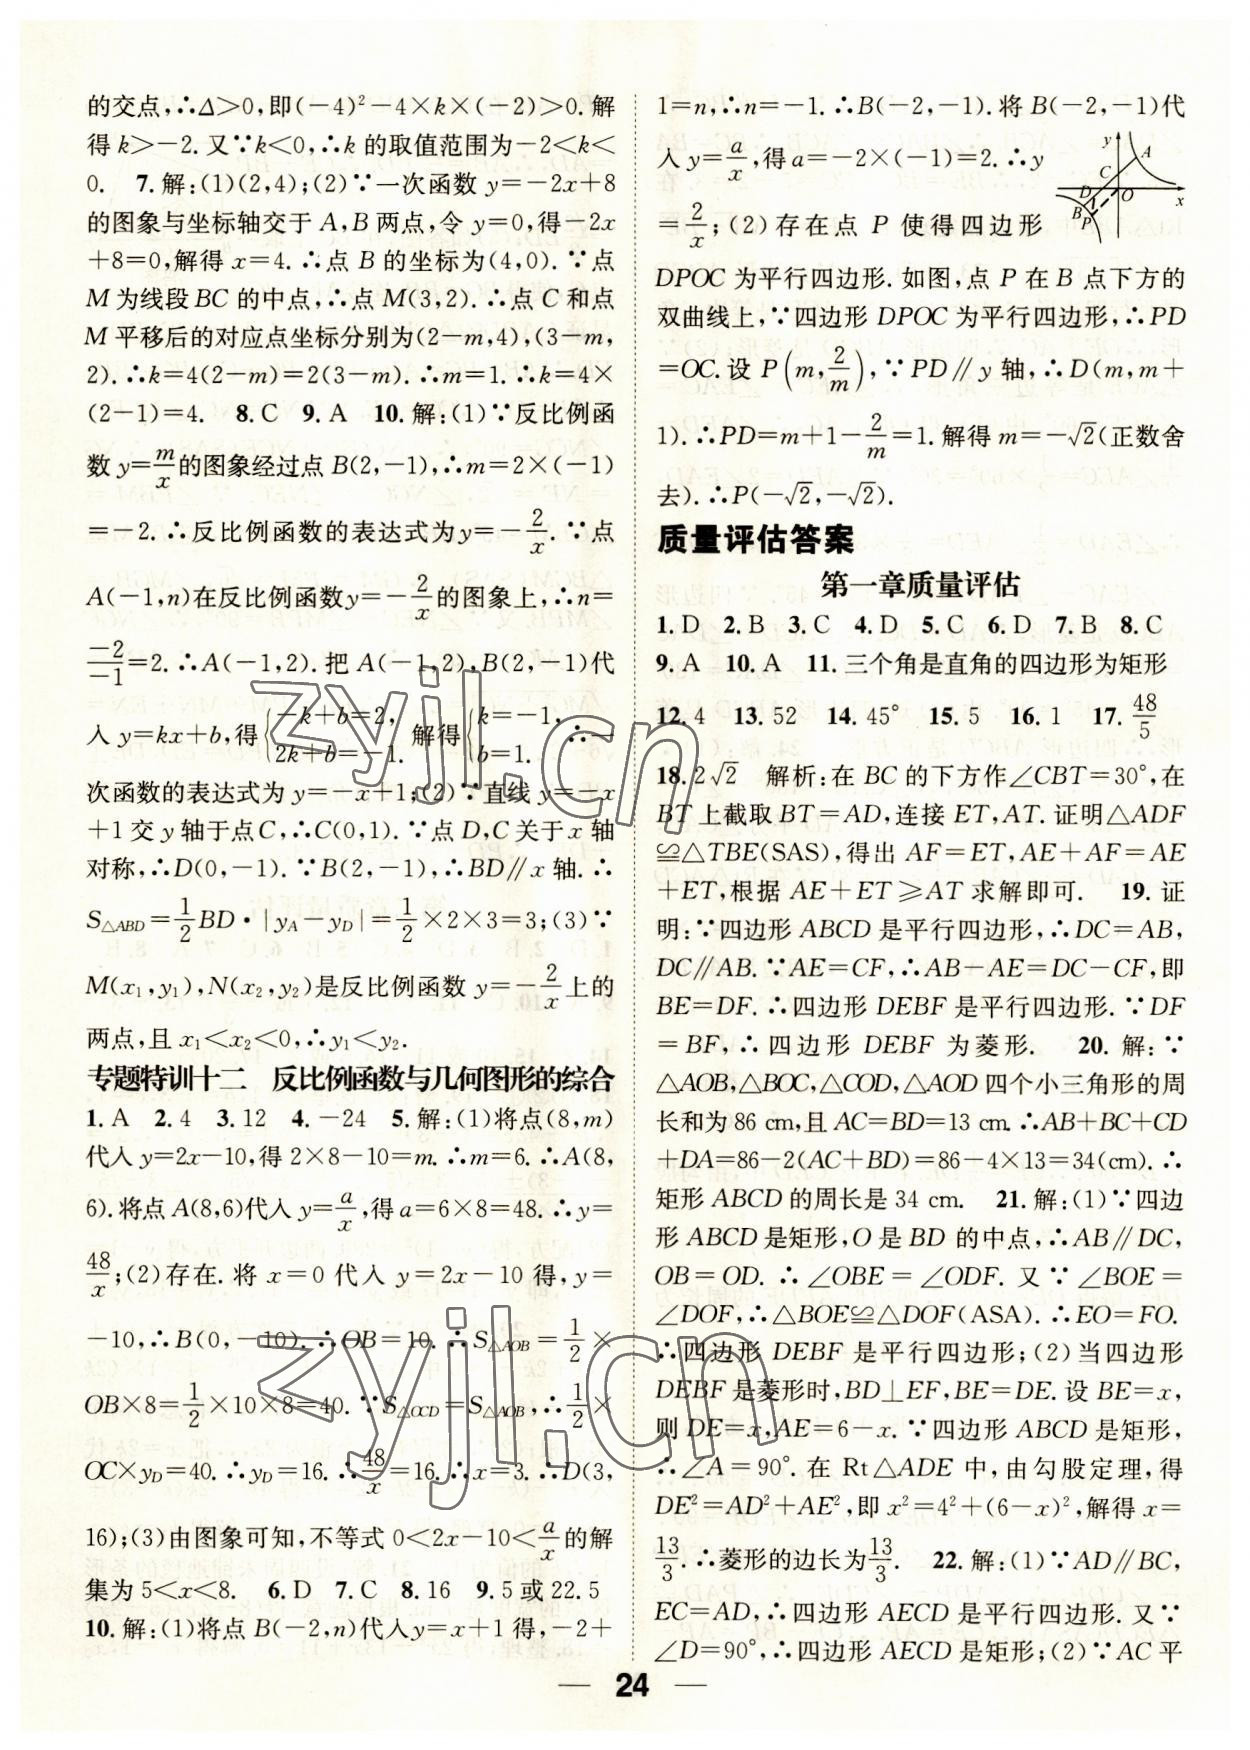 的交点,∴Δ>0,即(-4)²-4×k×(-2)>0.解
得k>-2.又∵k<0,∴k的取值范围为-2<k<
0. 7.解:(1)(2,4);(2)∵一次函数y=-2x+8
的图象与坐标轴交于A,B两点,令y=0,得-2x
+8=0,解得x=4.∴点B的坐标为(4,0).∵点
M为线段BC的中点,∴点M(3,2).∴点C和点
M平移后的对应点坐标分别为(2-m,4),(3-m,
2).∴k=4(2-m)=2(3-m).∴m=1.∴k=4×
(2-1)=4. 8.C 9.A 10.解:(1)∵反比例函
数y=m/x的图象经过点B(2,-1),∴m=2×(-1)
=-2.∴反比例函数的表达式为y=-2/x.∵点
A(-1,n)在反比例函数y=-2/x的图象上,∴n=
-2/-1=2.∴A(-1,2).把A(-1,2),B(2,-1)代
入y=kx+b,得{-k+b=2, 2k+b=-1. 解得{k=-1, b=1. ∴一
次函数的表达式为y=-x+1;(2)∵直线y=-x
+1交y轴于点C,∴C(0,1).∵点D,C关于x轴
对称,∴D(0,-1).∵B(2,-1),∴BD∥x轴.∴
S△ABD=1/2BD·|yA-yD|=1/2×2×3=3;(3)∵
M(x₁,y₁),N(x₂,y₂)是反比例函数y=-2/x上的
两点,且x₁<x₂<0,∴y₁<y₂.
专题特训十二 反比例函数与几何图形的综合
1.A 2.4 3.12 4.-24 5.解:(1)将点(8,m)
代入y=2x-10,得2×8-10=m.∴m=6.∴A(8,
6).将点A(8,6)代入y=a/x,得a=6×8=48.∴y=
48/x;(2)存在.将x=0代入y=2x-10得,y=
-10,∴B(0,-10).∴OB=10.∴S△AOB=1/2×
OB×8=1/2×10×8=40.∵S△OCD=S△AOB,∴1/2×
OC×yD=40.∴yD=16.∴48/x=16.∴x=3.∴D(3,
16);(3)由图象可知,不等式0<2x-10<a/x的解
集为5<x<8. 6.D 7.C 8.16 9.5或22.5
10.解:(1)将点B(-2,n)代入y=x+1得,-2+
1=n,∴n=-1.∴B(-2,-1).将B(-2,-1)代
入y=a/x,得a=-2×(-1)=2.∴y
=2/x;(2)存在点P使得四边形
y
A
C
D
O
x
B
P
DPOC为平行四边形.如图,点P在B点下方的
双曲线上,∵四边形DPOC为平行四边形,∴PD
=OC.设P(m,2/m),∵PD∥y轴,∴D(m,m+
1).∴PD=m+1-2/m=1.解得m=-√2(正数舍
去).∴P(-√2,-√2).
质量评估答案
第一章质量评估
1.D 2.B 3.C 4.D 5.C 6.D 7.B 8.C
9.A 10.A 11.三个角是直角的四边形为矩形
12.4 13.52 14.45° 15.5 16.1 17.48/5
18.2√2 解析:在BC的下方作∠CBT=30°,在
BT上截取BT=AD,连接ET,AT.证明△ADF
≌△TBE(SAS),得出AF=ET,AE+AF=AE
+ET,根据AE+ET≥AT求解即可. 19.证
明:∵四边形ABCD是平行四边形,∴DC=AB,
DC∥AB.∵AE=CF,∴AB-AE=DC-CF,即
BE=DF.∴四边形DEBF是平行四边形.∵DF
=BF,∴四边形DEBF为菱形. 20.解:∵
△AOB,△BOC,△COD,△AOD四个小三角形的周
长和为86 cm,且AC=BD=13 cm.∴AB+BC+CD
+DA=86-2(AC+BD)=86-4×13=34(cm).∴
矩形ABCD的周长是34 cm. 21.解:(1)∵四边
形ABCD是矩形,O是BD的中点,∴AB∥DC,
OB=OD.∴∠OBE=∠ODF.又∵∠BOE=
∠DOF,∴△BOE≌△DOF(ASA).∴EO=FO.
∴四边形DEBF是平行四边形;(2)当四边形
DEBF是菱形时,BD⊥EF,BE=DE.设BE=x,
则DE=x,AE=6-x.∵四边形ABCD是矩形,
∴∠A=90°.在Rt△ADE中,由勾股定理,得
DE²=AD²+AE²,即x²=4²+(6-x)²,解得x=
13/3.∴菱形的边长为13/3. 22.解:(1)∵AD∥BC,
EC=AD,∴四边形AECD是平行四边形.又∵
∠D=90°,∴四边形AECD是矩形;(2)∵AC平
24
zyjl.cn
zyjl.cn